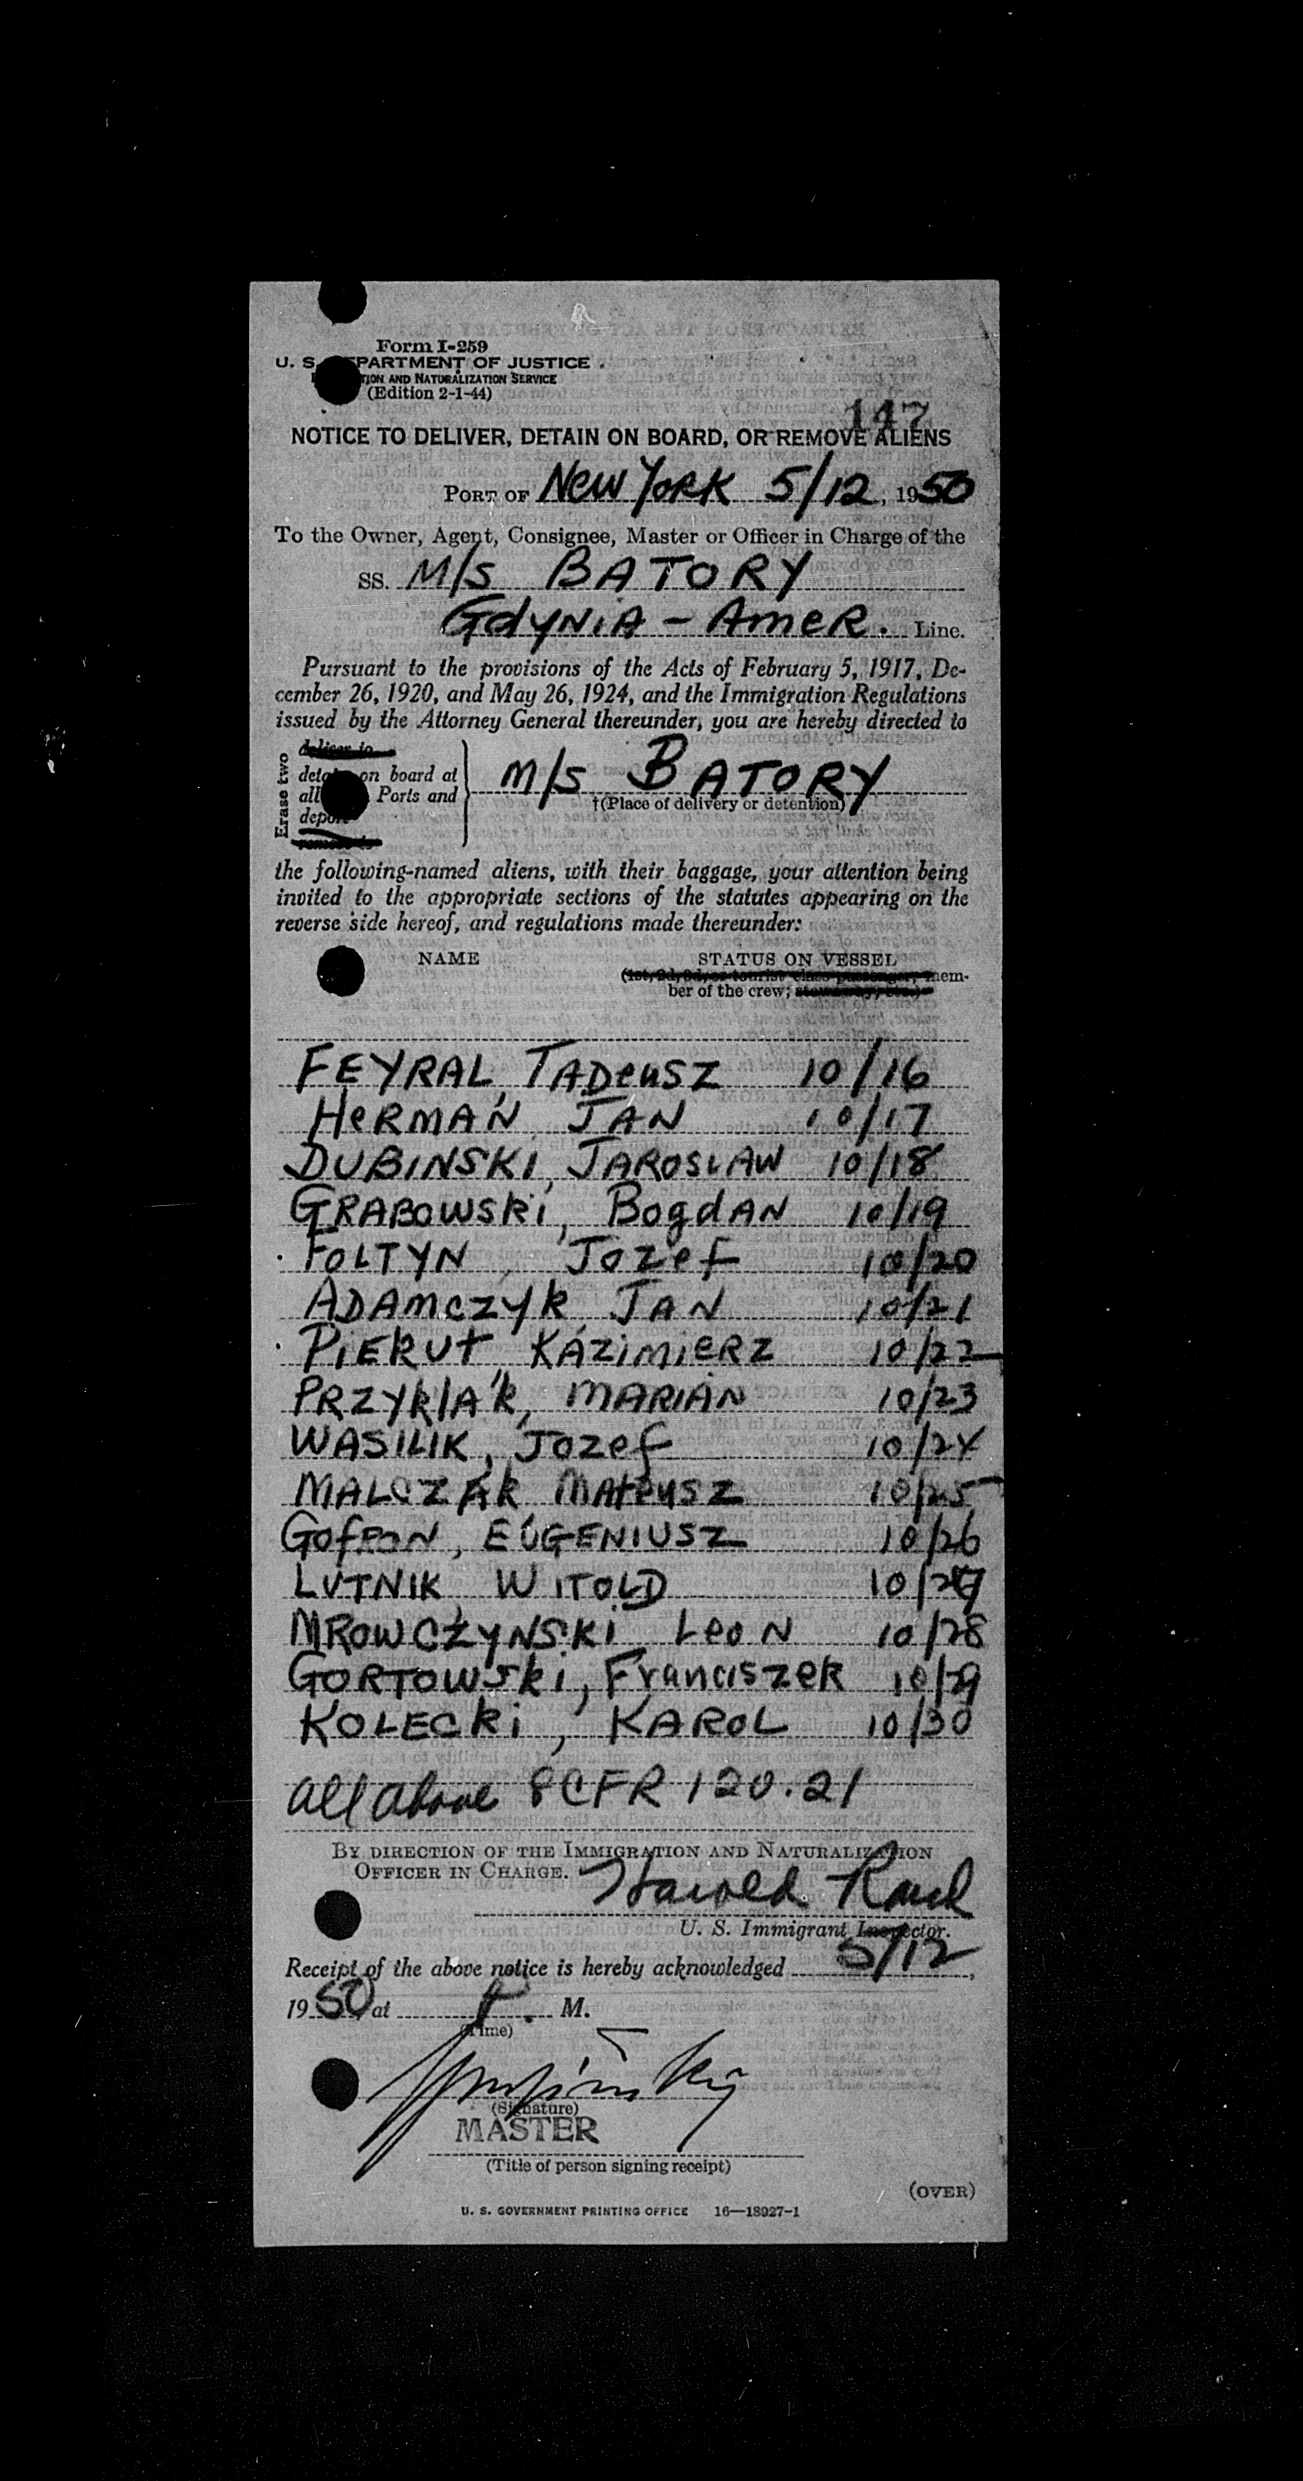 Form I-259
U. S. DEPARTMENT OF JUSTICE
TION AND NATURALIZATION SERVICE
(Edition 2-1-44)
147
NOTICE TO DELIVER, DETAIN ON BOARD, OR REMOVE ALIENS
PORT OF New York 5/12, 1950
To the Owner, Agent, Consignee, Master or Officer in Charge of the
SS. M/S BATORY
GdyNiA - AmeR. Line.
Pursuant to the provisions of the Acts of February 5, 1917, De-
cember 26, 1920, and May 26, 1924, and the Immigration Regulations
issued by the Attorney General thereunder, you are hereby directed to
Erase two
deliver to
detain on board at
all Ports and
deport
remove to
M/S BATORY
†(Place of delivery or detention)
the following-named aliens, with their baggage, your attention being
invited to the appropriate sections of the statutes appearing on the
reverse side hereof, and regulations made thereunder:
NAME STATUS ON VESSEL
(1st, 2d, 3d, or tourist class passenger; mem-
ber of the crew; stowaway, etc.)
FEYRAL, TADeusz 10/16
HeRMAN, JAN 10/17
DUBINSKI, JAROSLAW 10/18
GRABOWSKi, BogdAN 10/19
FOLTYN, Jozef 10/20
ADAMczyk, JAN 10/21
PiEkut KAZiMiERZ 10/22
PRZYklAk, MARIAN 10/23
WASILIK, Jozef 10/24
MALCZAk MATeusz 10/25
GofRoN, EUGENIUSZ 10/26
LUTNIK WITOLD 10/27
MROWCZYNSKi LeoN 10/28
GORTOWSki, Franciszek 10/29
KOLECki, KAROL 10/30
all above 8 CFR 120.21
BY DIRECTION OF THE IMMIGRATION AND NATURALIZATION
OFFICER IN CHARGE.
Harold
U. S. Immigrant Inspector.
Receipt of the above notice is hereby acknowledged 5/12,
1950, at M.
(Time)
(Signature)
MASTER
(Title of person signing receipt)
(OVER)
U. S. GOVERNMENT PRINTING OFFICE 16—18927-1